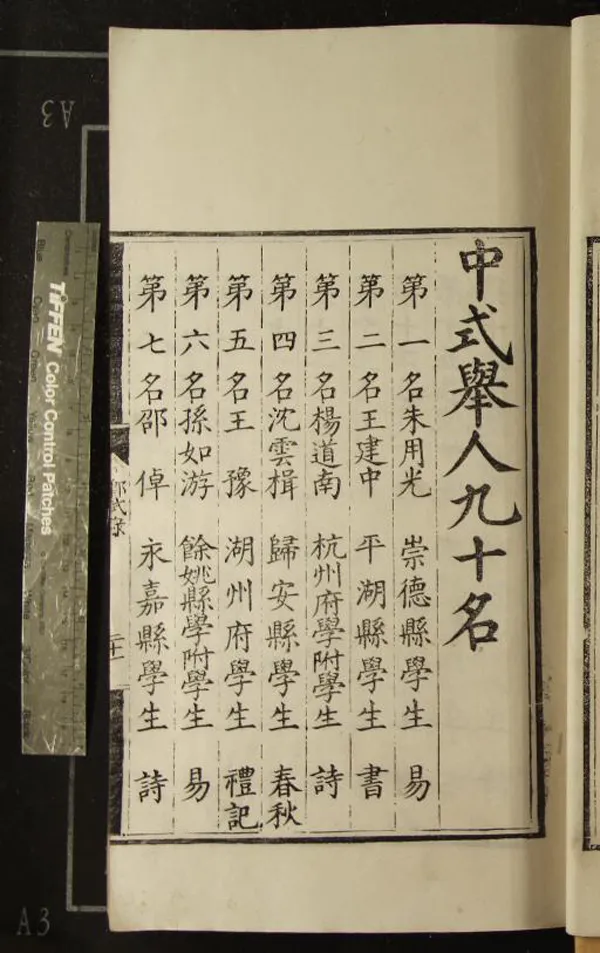 中式舉人九十名
第一名朱用光 崇德縣學生 易
第二名王建中 平湖縣學生 書
第三名楊道南 杭州府學附學生 詩
第四名沈雲楫 歸安縣學生 春秋
第五名王豫 湖州府學生 禮記
第六名孫如游 餘姚縣學附學生 易
第七名邵倬 永嘉縣學生 詩
鄉試录
TIFFEN Color Control Patches
A3
A3